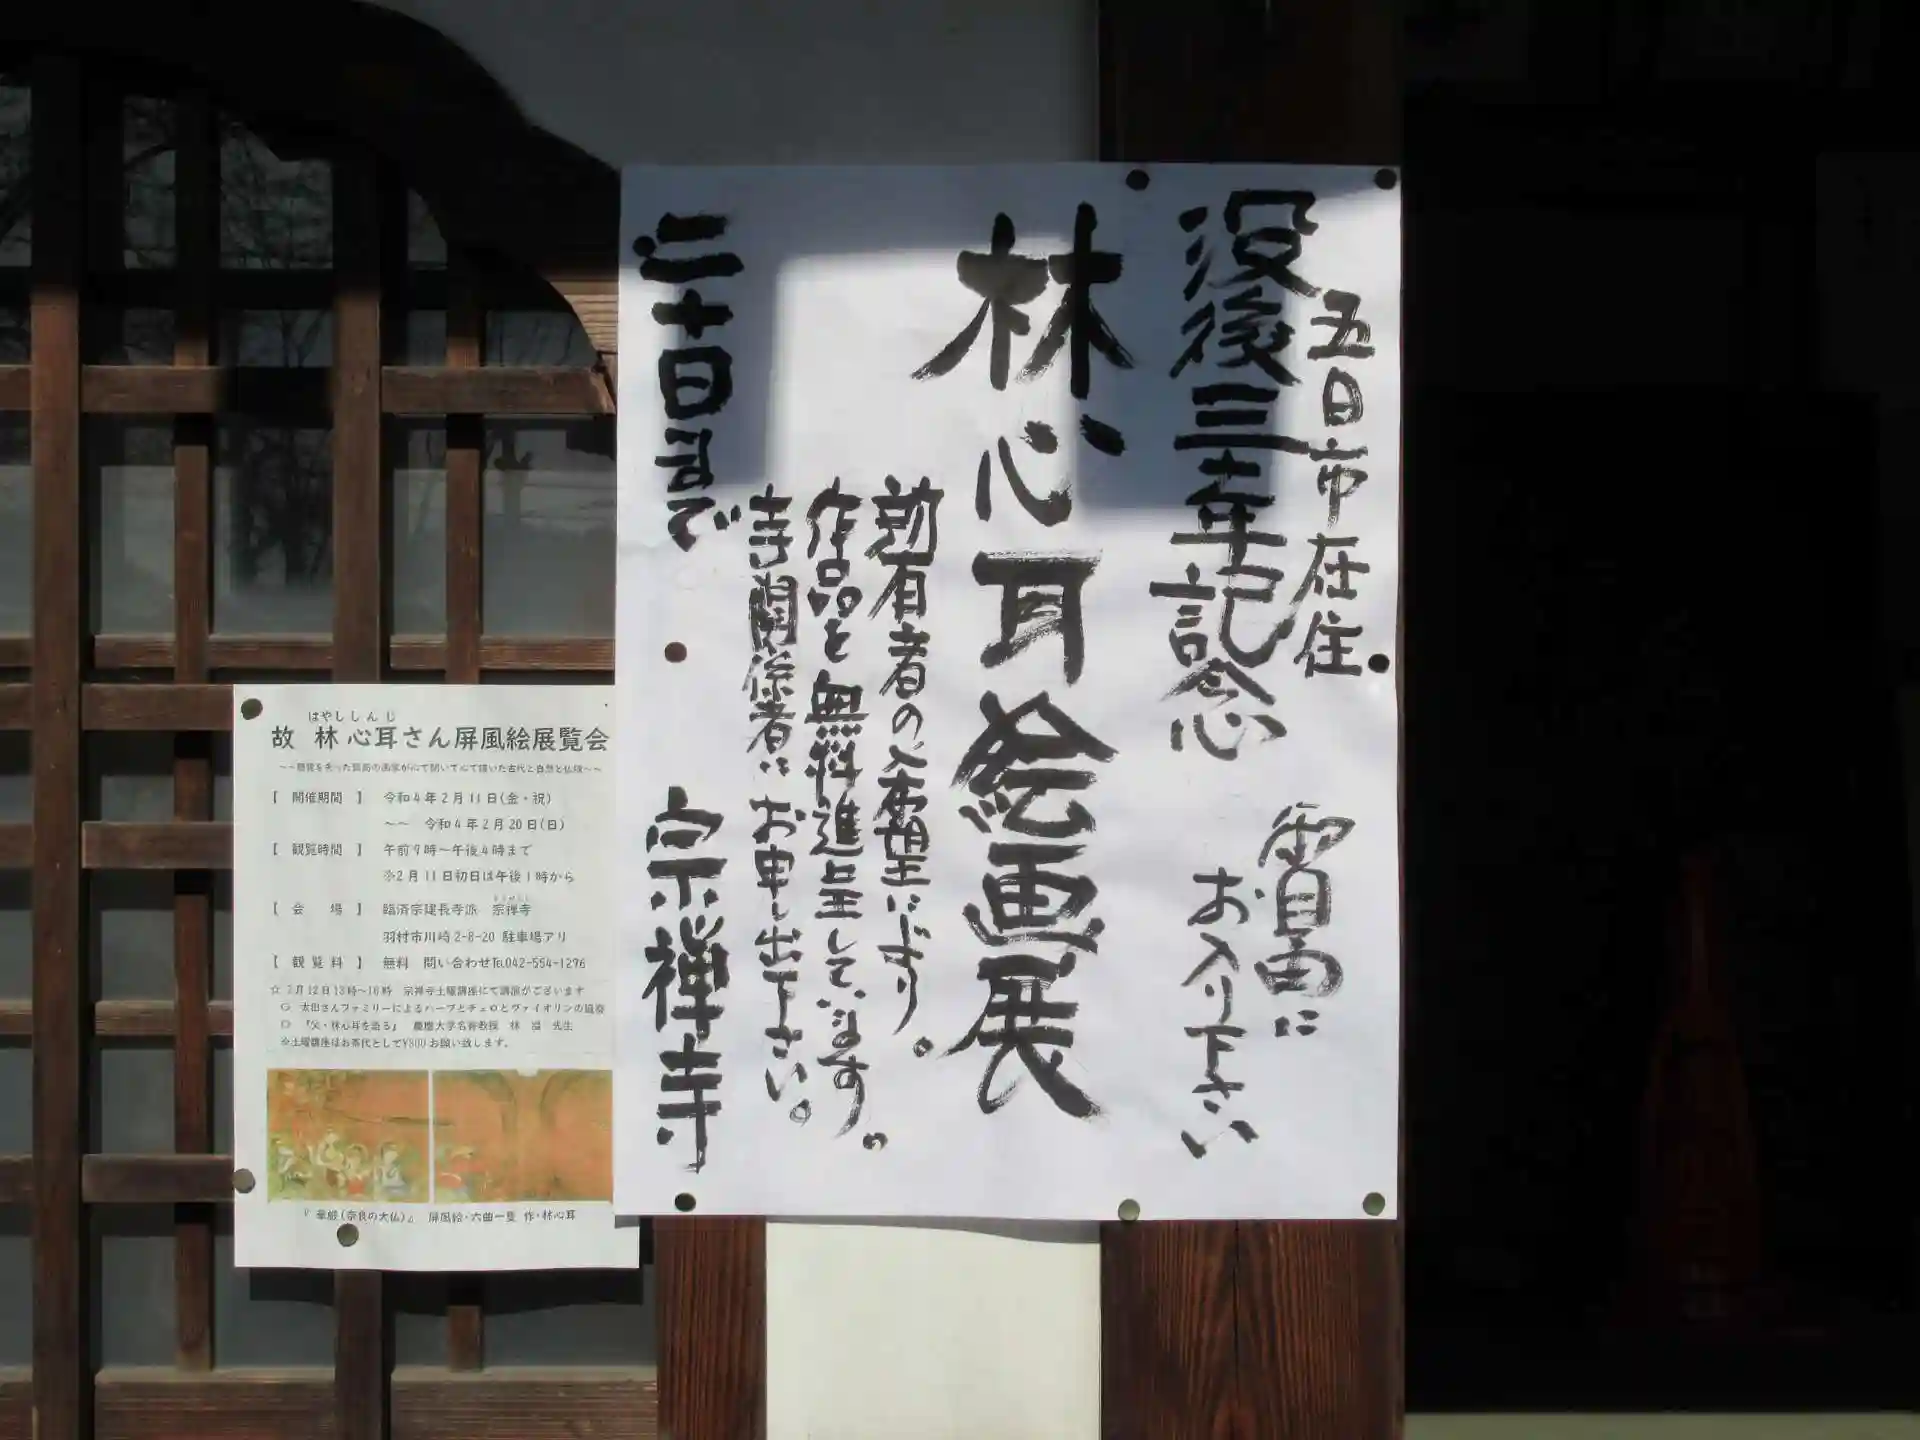 五日市在住
没後三年記念
自由に
お入り下さい
林心耳絵画展
者の希望により
作品を無料進呈しています。
寺関係者にお申し出下さい。
二十日まで
宗禅寺
はやししんじ
故 林心耳さん屏風絵展覧会
【 開催期間 】 令和4年2月11日(金・祝)
~~ 令和4年2月20日(日)
【 観覧時間 】 午前9時~午後4時まで
※2月11日初日は午後1時から
【 会 場 】 臨済宗建長寺派 宗禅寺
羽村市川崎2-8-20 駐車場アリ
【 観覧料 】 無料 問い合わせ℡042-554-1276
☆ 2月12日13時~16時 宗禅寺土曜講座にて講演がございます
○ 太田さんファミリーによるハープとチェロとヴァイオリンの協奏
○ 『父・林心耳を語る』 慶應大学名誉教授 林 先生
※土曜講座はお茶代として¥800お願い致します。
『華厳(奈良の大仏)』 屏風絵・六曲一隻 作・林心耳